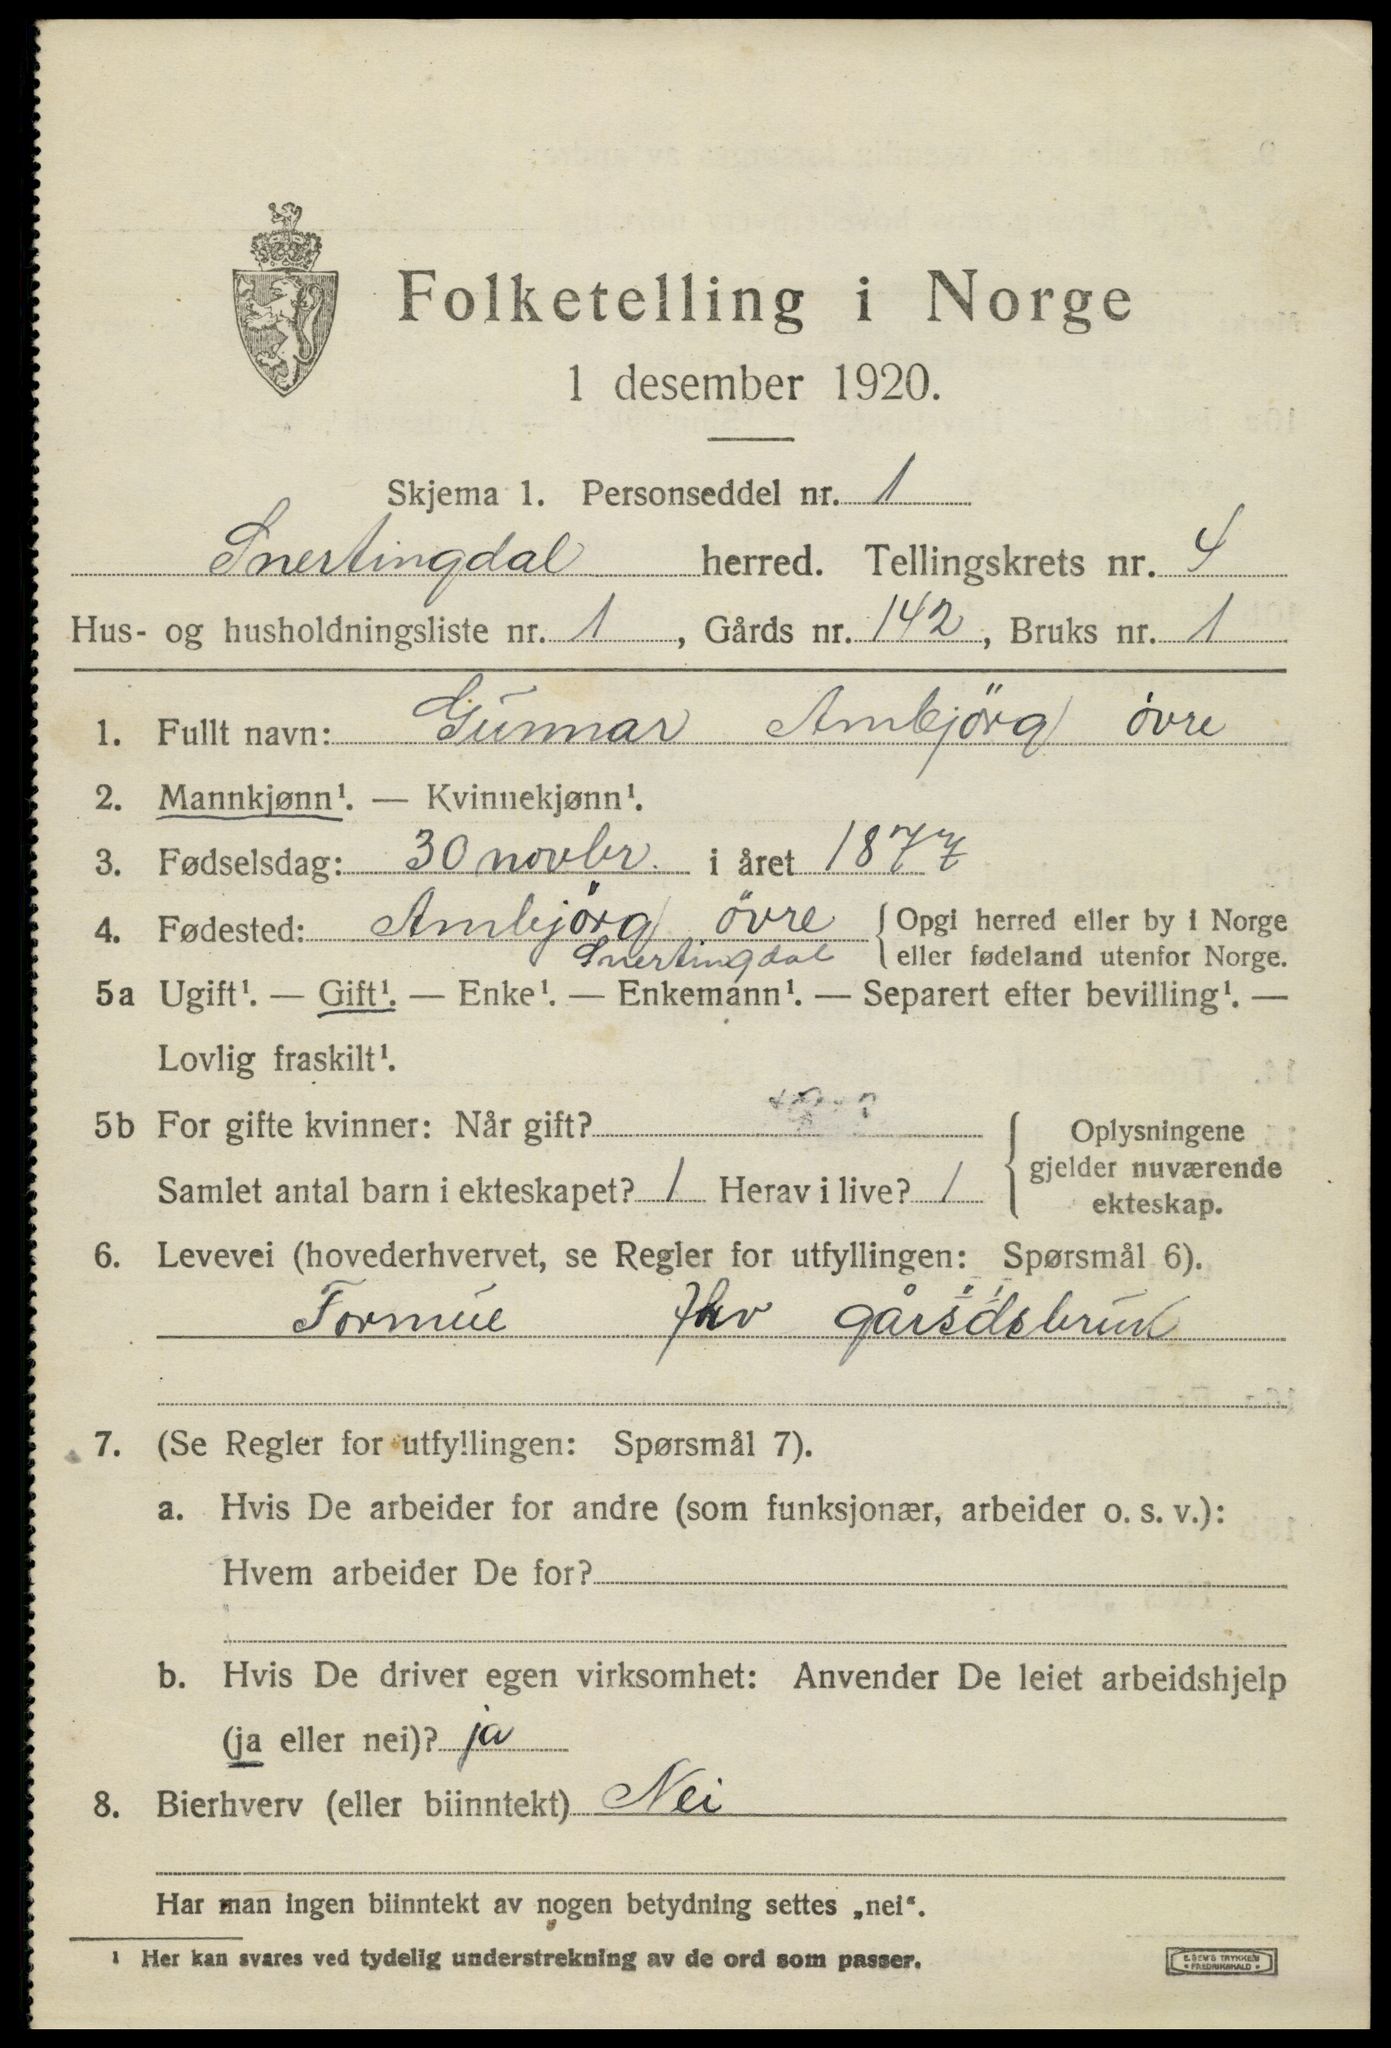 Folketelling i Norge
1 desember 1920.
Skjema 1. Personseddel nr. 1
Snertingdal herred. Tellingskrets nr. 4
Hus- og husholdningsliste nr. 1, Gårds nr. 142, Bruks nr. 1
1. Fullt navn: Gunnar Ambjörg övre
2. Mannkjønn¹. — Kvinnekjønn¹.
3. Fødselsdag: 30 novbr. i året 1877
4. Fødested: Ambjörg övre { Opgi herred eller by i Norge
Snertingdal eller fødeland utenfor Norge.
5a Ugift¹. — Gift¹. — Enke¹. — Enkemann¹. — Separert efter bevilling¹. —
Lovlig fraskilt¹.
5b For gifte kvinner: Når gift?
Samlet antal barn i ekteskapet? 1 Herav i live? 1
{ Oplysningene
gjelder nuværende
ekteskap.
6. Levevei (hovederhvervet, se Regler for utfyllingen: Spørsmål 6).
Formue gårsdsbruk
7. (Se Regler for utfyllingen: Spørsmål 7).
a. Hvis De arbeider for andre (som funksjonær, arbeider o. s. v.):
Hvem arbeider De for?
b. Hvis De driver egen virksomhet: Anvender De leiet arbeidshjelp
(ja eller nei)? ja
8. Bierhverv (eller biinntekt) Nei
Har man ingen biinntekt av nogen betydning settes „nei“.
¹ Her kan svares ved tydelig understrekning av de ord som passer.
FREDRIKSHALD